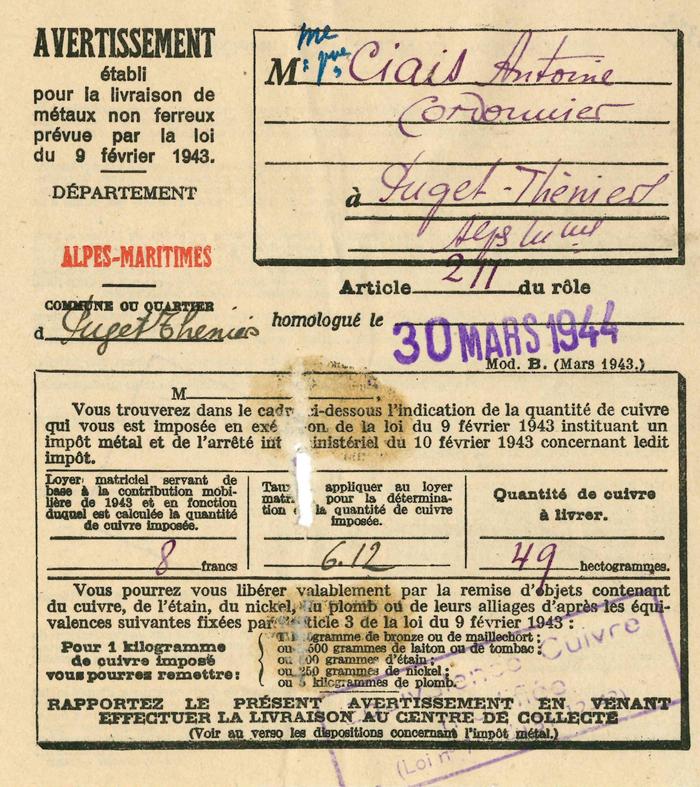 AVERTISSEMENT
établi
pour la livraison de
métaux non ferreux
prévue par la loi
du 9 février 1943.
DÉPARTEMENT
ALPES-MARITIMES
COMMUNE OU QUARTIER
d Puget Théniers
me
M Ciais Antoine
Cordonnier
à Puget-Théniers
Alps
Article 211 du rôle
homologué le 30 MARS 1944
Mod. B. (Mars 1943.)
M
Vous trouverez dans le cadr ci-dessous l'indication de la quantité de cuivre
qui vous est imposée en exé on de la loi du 9 février 1943 instituant un
impôt métal et de l'arrêté int ministériel du 10 février 1943 concernant ledit
impôt.
Loyer matriciel servant de
base à la contribution mobi-
lière de 1943 et en fonction
duquel est calculée la quantité
de cuivre imposée.
8 francs
Taux appliquer au loyer
matr pour la détermina-
tion la quantité de cuivre
imposée.
6.12
Quantité de cuivre
à livrer.
49 hectogrammes.
Vous pourrez vous libérer valablement par la remise d'objets contenant
du cuivre, de l'étain, du nickel, du plomb ou de leurs alliages d'après les équi-
valences suivantes fixées par ticle 3 de la loi du 9 février 1943 :
Pour 1 kilogramme
de cuivre imposé
vous pourrez remettre :
ogramme de bronze ou de maillechort ;
ou 500 grammes de laiton ou de tombac ;
ou 00 grammes d'étain ;
ou 250 grammes de nickel ;
ou kilogrammes de plomb.
RAPPORTEZ LE PRÉSENT AVERTISSEMENT EN VENANT
EFFECTUER LA LIVRAISON AU CENTRE DE COLLECTE
(Voir au verso les dispositions concernant l'impôt métal.)
Cuivre
(Loi n°